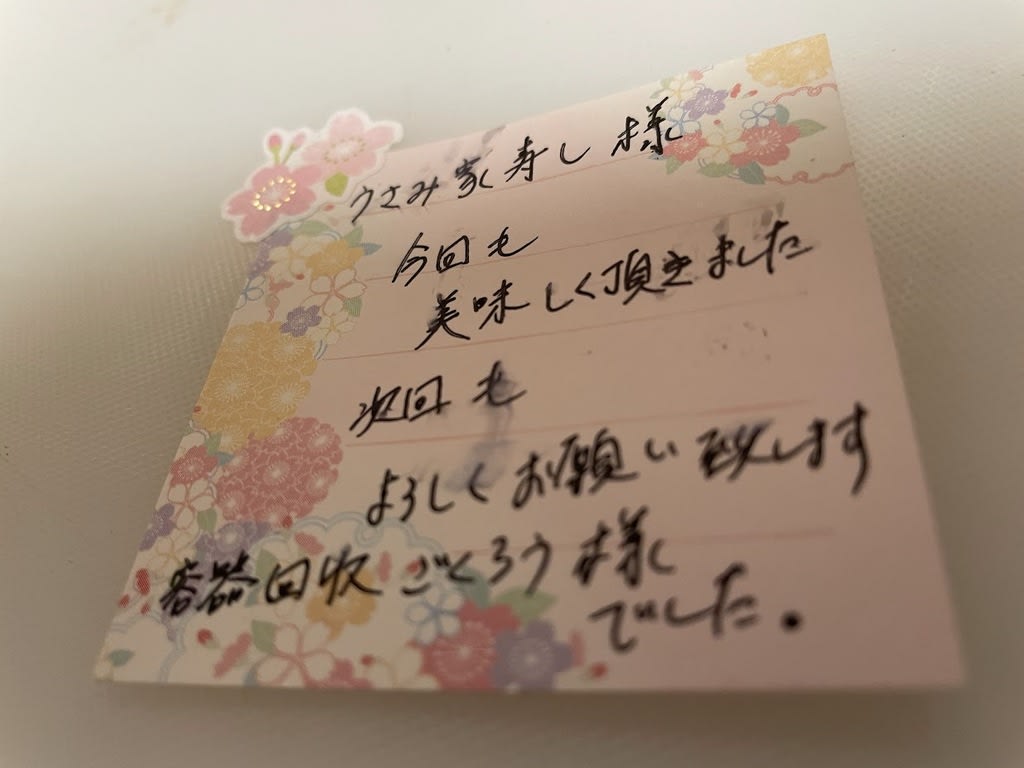 うさみ家寿し 様
今回も
美味しく頂きました
次回も
よろしくお願い致します
容器回収 ごくろう様
でした.